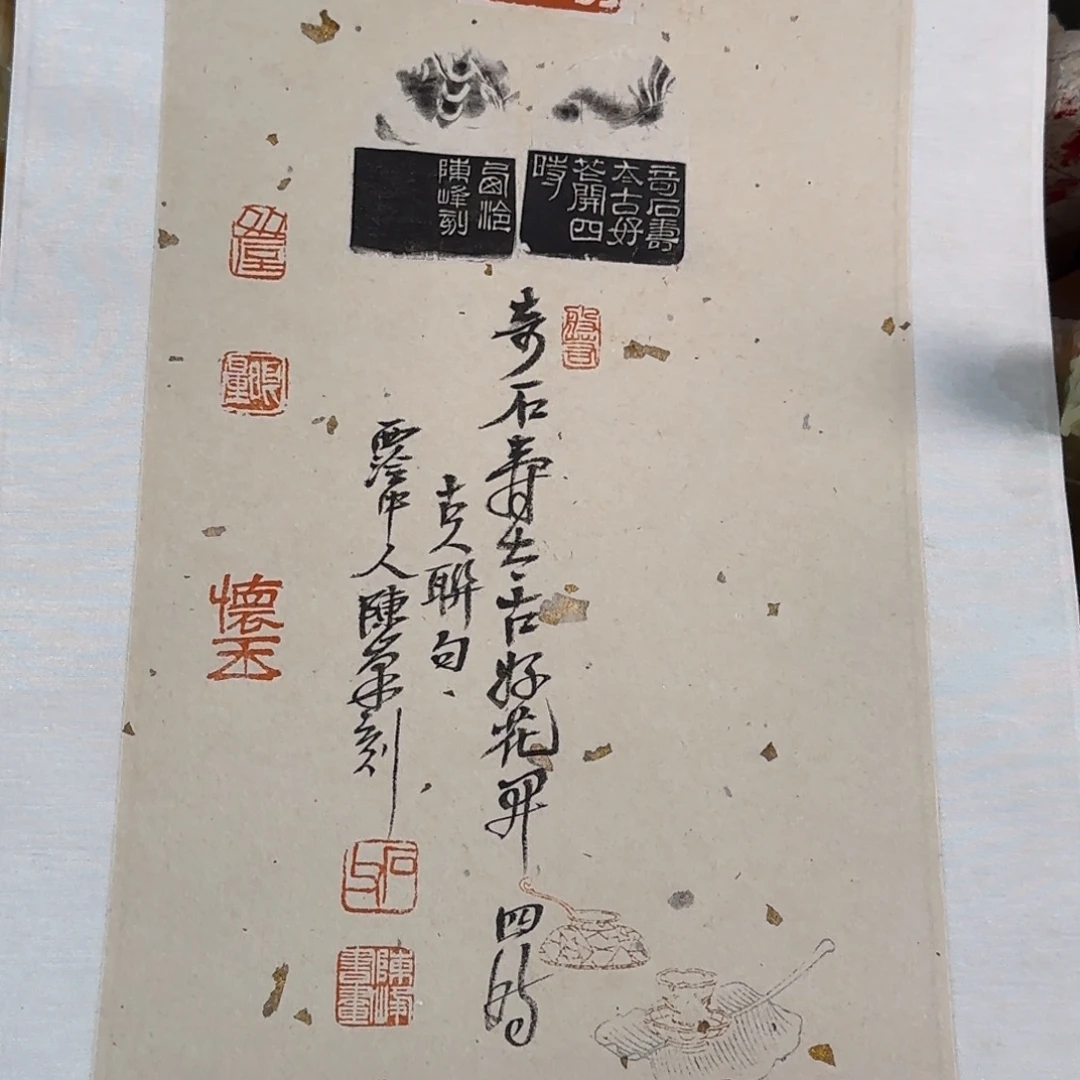 奇石壽
太古好
花開四
時
西泠
陳峰刻
奇石壽太古好花開四時
古人聯句
西泠中人陳峯刻
懷玉
陳峰
書畫